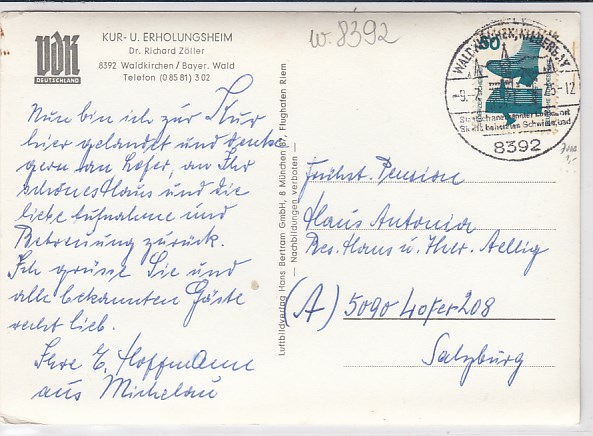 VdK
DEUTSCHLAND
KUR- U. ERHOLUNGSHEIM
Dr. Richard Zöller
8392 Waldkirchen / Bayer. Wald
Telefon (0 85 81) 3 02
w. 8392
Nun bin ich zur Kur
hier gelandet und denke
gern an Lofer, an Ihr
schönes Haus und die
liebe Aufnahme und
Betreuung zurück.
Ich grüsse Sie und
alle bekannten Gäste
recht lieb.
Ihre E. Hoffmann
aus Michelau
Luftbildverlag Hans Bertram GmbH, 8 München 87, Flughafen Riem
— Nachbildungen verboten —
60
8392
Frühst. Pension
Haus Antonia
Bes. Haus u. Helr. Aellig
(A) 5090 Lofer 208
Salzburg